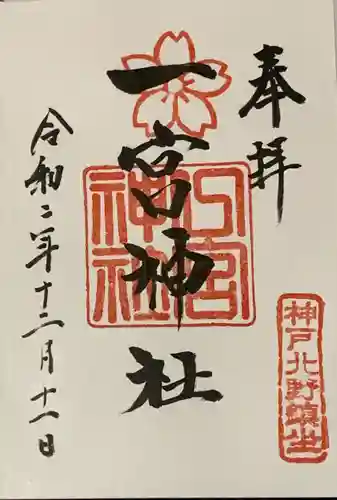 奉拝
一宮神社
一宮神社
令和二年十二月十一日
神戸北野鎮坐